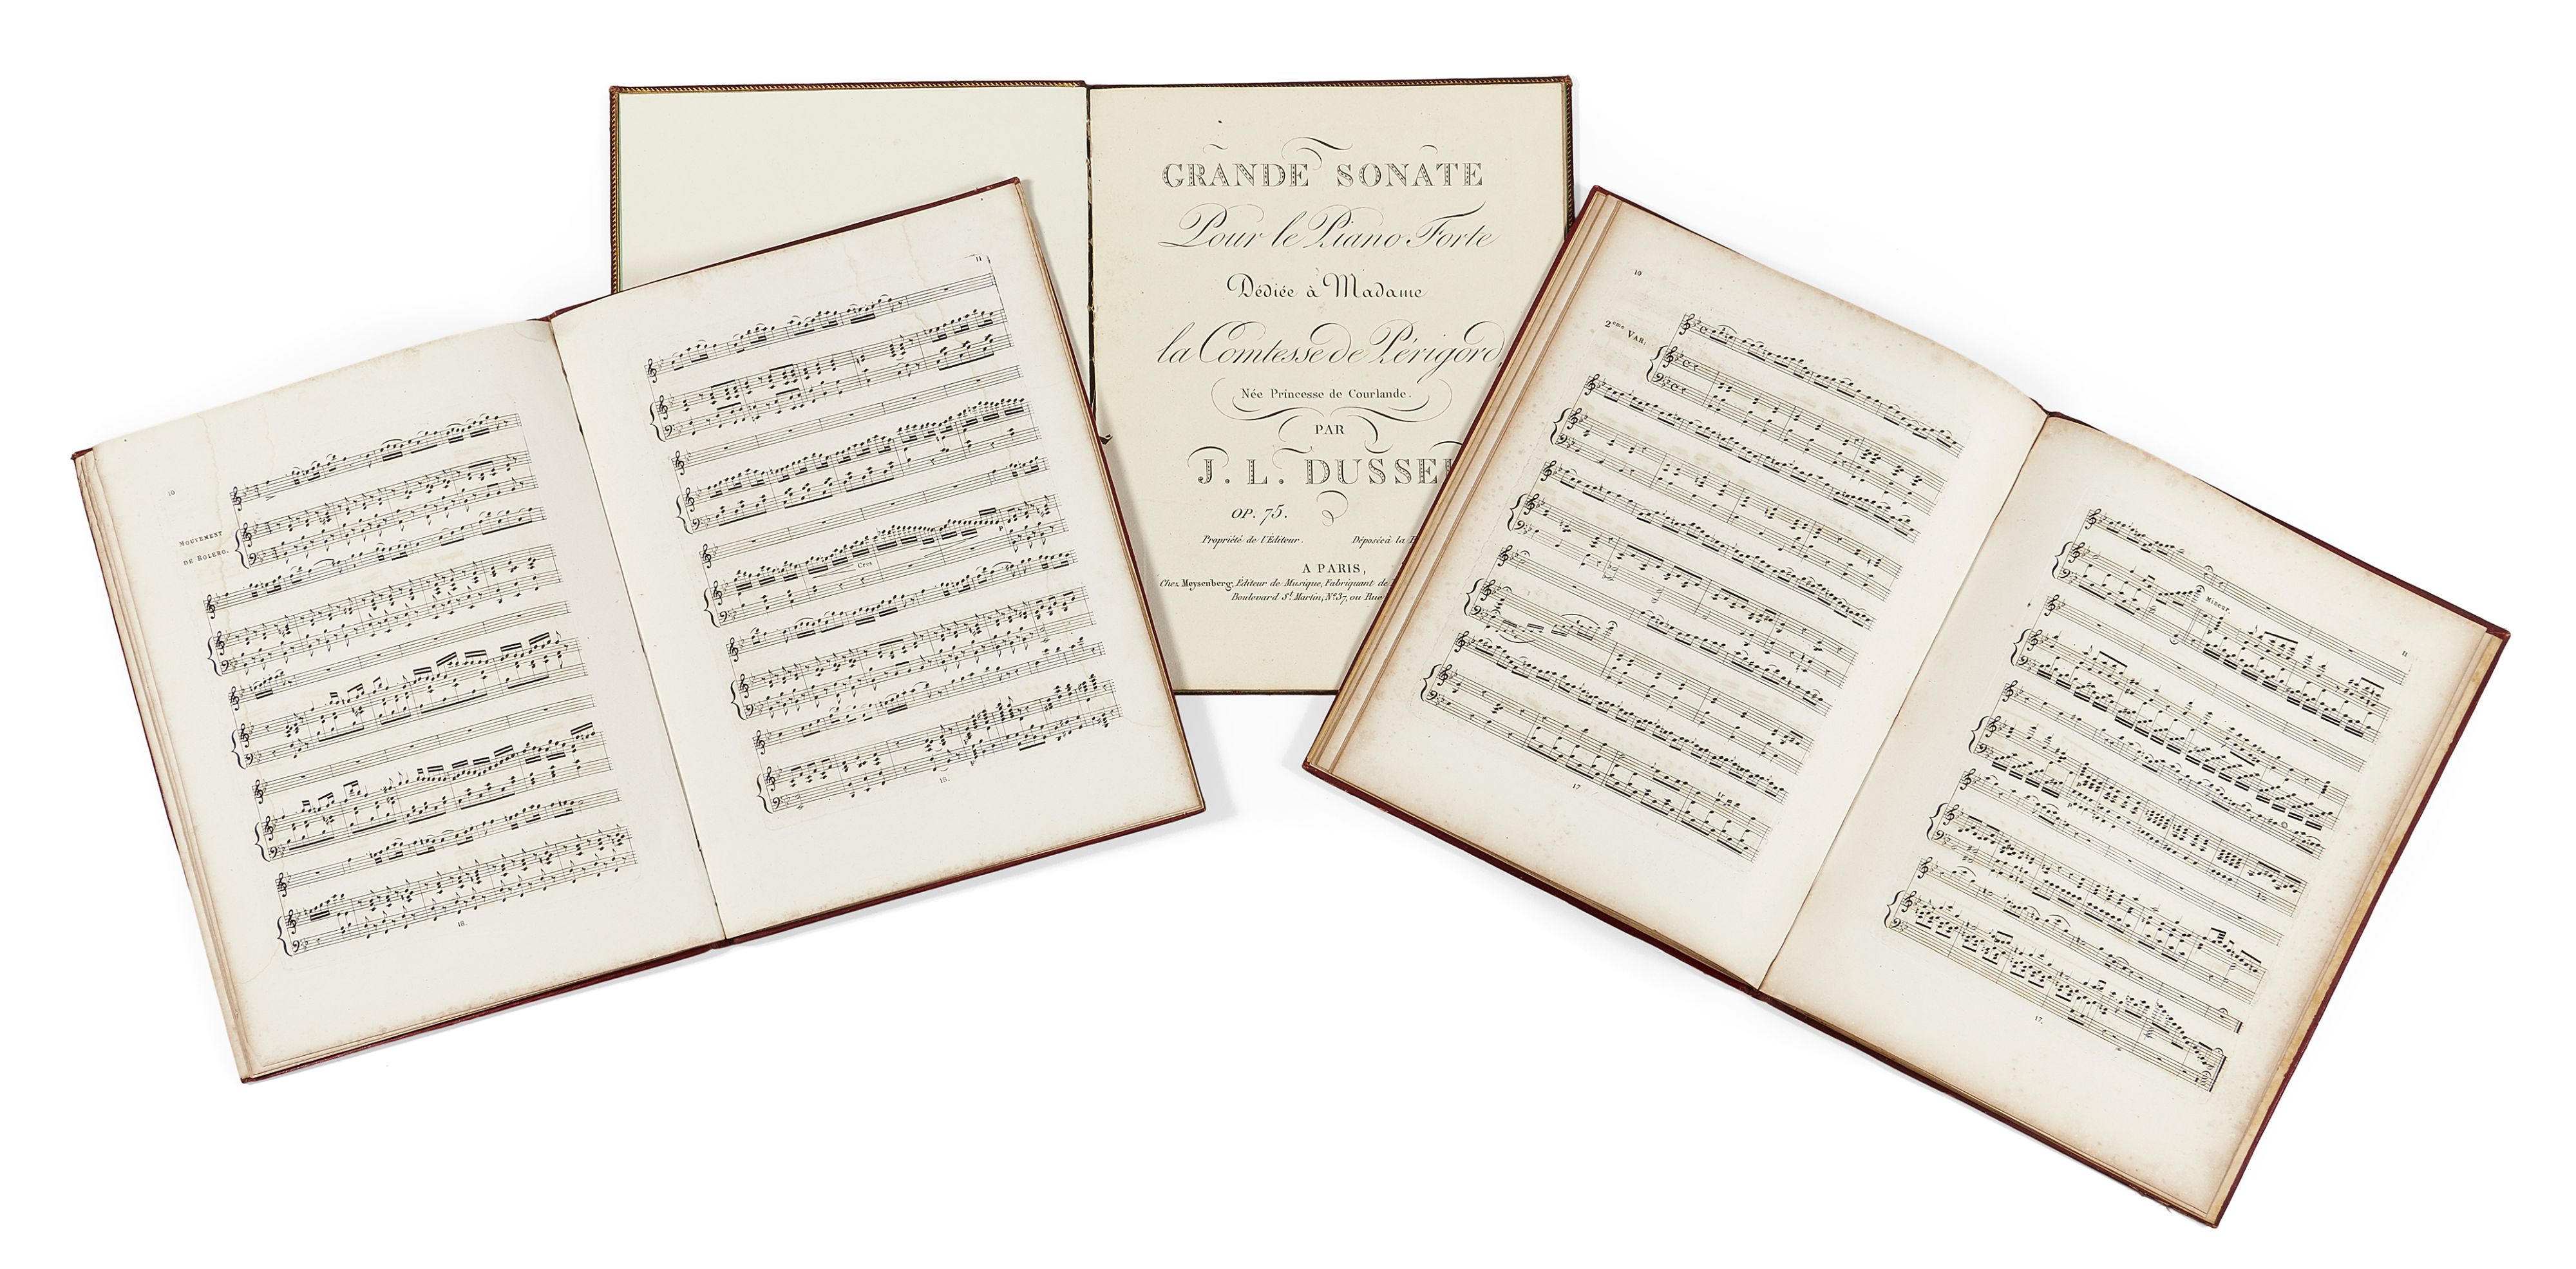 GRANDE SONATE
Pour le Piano Forte
Dédiée à Madame
la Comtesse de Périgord,
Née Princesse de Courlande.
PAR
J. L. DUSSE
OP. 75.
Propriété de l'Editeur. Déposée à la
A PARIS,
Chez Meysenberg, Editeur de Musique, Fabriquant de
Boulevard St. Martin, No. 37, ou Rue
10
MOUVEMENT
DE BOLERO.
18.
11
Cres
P
F
F
18.
10
2eme VAR:
17
11
Mineur.
P
17.